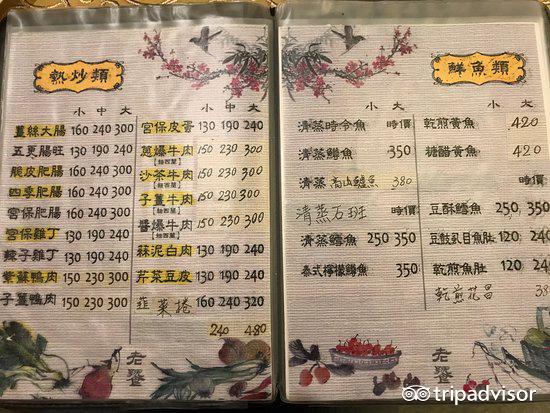 熱炒類
小 中 大
薑絲大腸 160 240 300
五更腸旺 130 190 240
脆皮肥腸 160 240 300
四季肥腸 160 240 300
宮保肥腸 160 240 300
宮保雞丁 130 190 240
辣子雞丁 130 190 240
紫蘇鴨肉 150 230 300
子薑鴨肉 150 230 300
小 中 大
宮保皮蛋 130 190 240
蔥爆牛肉 150 230 300
沙茶牛肉 150 230 300
子薑牛肉 150 230 300
醬爆牛肉 150 230 300
蒜泥白肉 130 190 240
芹菜豆皮 130 190 240
韮菜捲 160 240 320
240 480
鮮魚類
小 大
清蒸時令魚 時價
清蒸鱔魚 350
清蒸高山鱷魚 380
清蒸石斑 時價
清蒸鱈魚 250 350
泰式檸檬鱘魚 350
小 大
乾煎黃魚 420
糖醋黃魚 420
時價
豆酥鱈魚 250 350
豆豉虱目魚肚 120 240
乾煎魚肚 120 240
乾煎花昌 38
老
老
tripadvisor